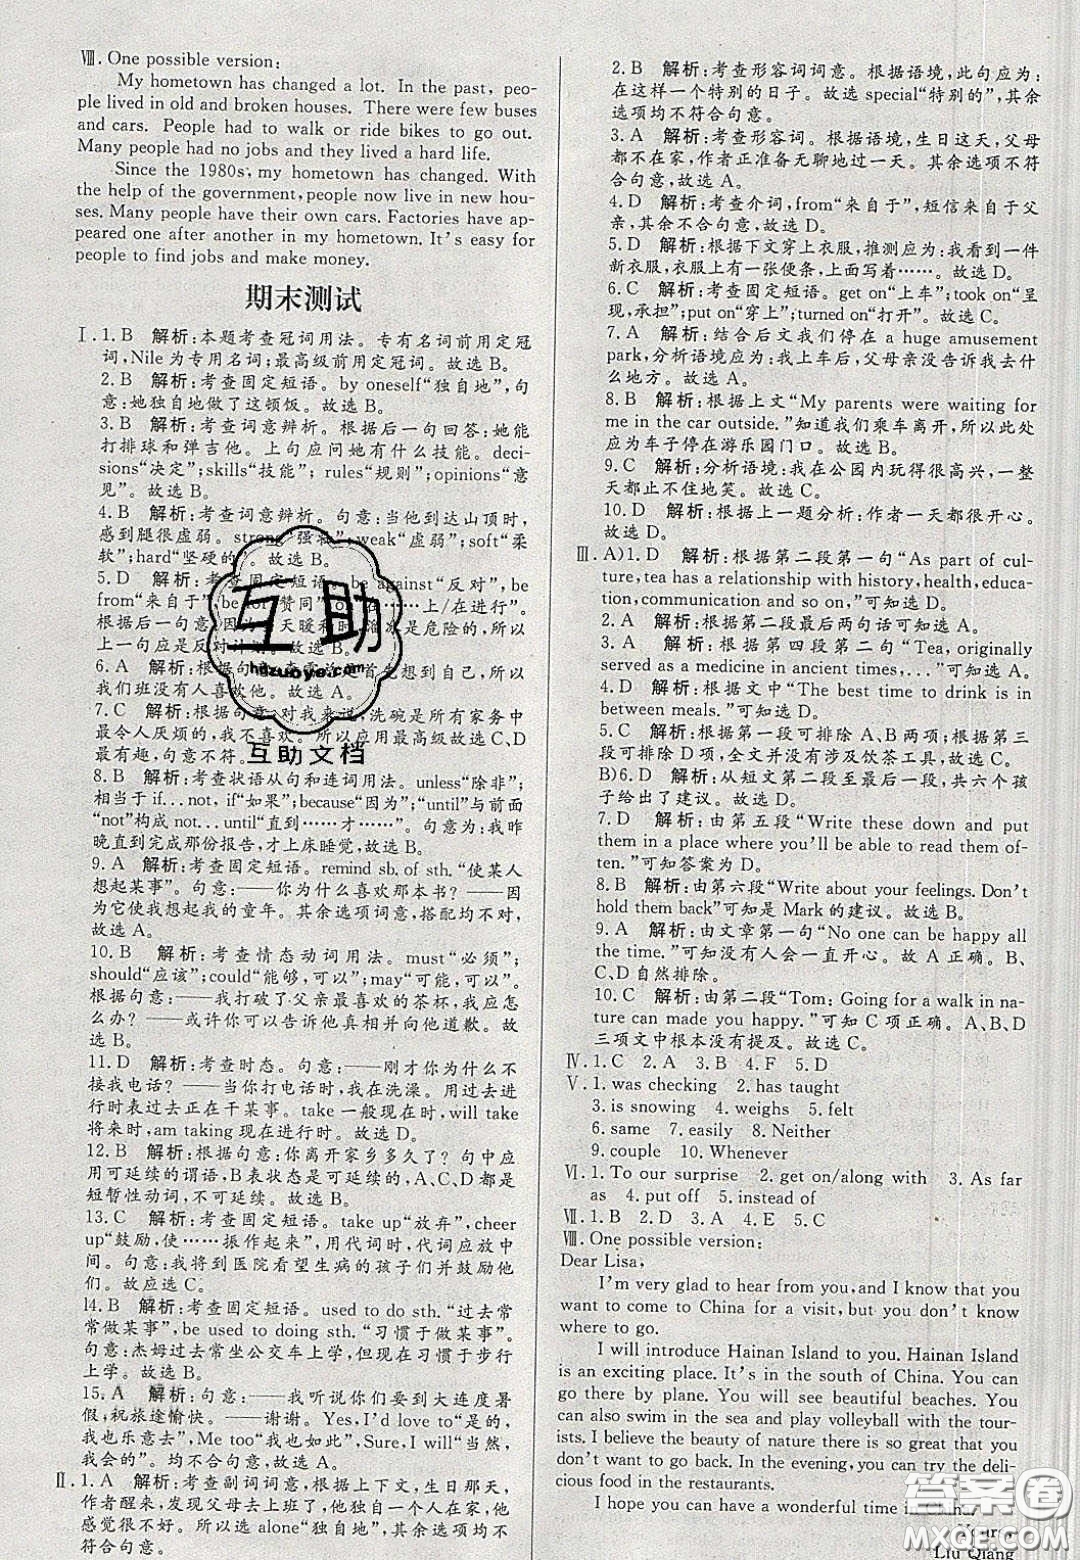 Ⅷ. One possible version:
My hometown has changed a lot. In the past, peo-
ple lived in old and broken houses. There were few buses
and cars. People had to walk or ride bikes to go out.
Many people had no jobs and they lived a hard life.
Since the 1980s, my hometown has changed. With
the help of the government, people now live in new hou-
ses. Many people have their own cars. Factories have ap-
peared one after another in my hometown. It's easy for
people to find jobs and make money.
期末测试
Ⅰ. 1. B 解析:本题考查冠词用法。专有名词前用定冠
词,Nile 为专用名词;最高级前用定冠词。故选 B。
2. B 解析:考查固定短语。by oneself“独自地”,句
意:她独自地做了这顿饭。故选 B。
3. B 解析:考查词意辨析。根据后一句回答:她能
打排球和弹吉他。上句应问她有什么技能。deci-
sions“决定”;skills“技能”; rules“规则”;opinions“意
见”。故选 B。
4. B 解析:考查词意辨析。句意:当他到达山顶时,
感到腿很虚弱。strong“强壮”;weak“虚弱”;soft“柔
软”;hard“坚硬的”。故选 B。
5. D 解析:考查固定短语。be against“反对”,be
from“来自于”,be for“赞同”be on“在……上/在进行”。
根据后一句意:天暖和时,溜冰是危险的,所以
上一句应是反对计划。故选 D。
6. A 解析:根据句意,首先想到自己,所以
我们班没有人喜欢他。故选 A。
7. C 解析:根据句意:对我来说,洗碗是所有家务中
最令人厌烦的,我不喜欢。所以应用最高级故选 C,D
最有趣,句意不符。
8. B 解析:考查状语从句和连词用法。unless“除非”;
相当于 if...not, if“如果”;because“因为”;“until”与前面
“not”构成 not...until“直到……才……”。句意为:我昨
晚直到完成那份报告,才上床睡觉。故选 B。
9. A 解析:考查固定短语。remind sb. of sth.“使某人
想起某事”。句意:——你为什么喜欢那本书?——因
为它使我想起我的童年。其余选项词意,搭配均不对。
故选 A。
10. B 解析:考查情态动词用法。must“必须”;
should“应该”;could“能够,可以”;may“可能,可以”。
根据句意:——我打破了父亲最喜欢的茶杯,我应怎
么办?——或许你可以告诉他真相并向他道歉。故
选 B。
11. D 解析:考查时态。句意:——刚才你为什么不
接我电话?——当你打电话时,我在洗澡。用过去进
行时表示过去正在干某事。take 一般现在时,will take
将来时,am taking 现在进行时。故选 D。
12. B 解析:根据句意:你离开家乡多久了?句中应
用可延续的谓语,B表状态是可延续。A、C、D都是
短暂性动词,不可延续。故选 B。
13. C 解析:考查固定短语。take up“放弃”,cheer
up“鼓励,使……振作起来”,用代词时,代词应放中
间。句意:我将到医院看望生病的孩子们并鼓励他
们。故应选 C。
14. B 解析:考查固定短语。used to do sth.“过去常
常做某事”,be used to doing sth.“习惯于做某事”。
句意:杰姆过去常坐公交车上学,但现在习惯于步行
上学。故选 B。
15. A 解析:句意:——我听说你们要到大连度暑
假,祝旅途愉快。——谢谢。Yes,I'd love to“是的,
我也乐意去”,Me too“我也如此”,Sure, I will“当然,
我会的”。均不合句意。故选 A。
Ⅱ. 1. A 解析:考查副词词意,根据上下文,生日那天,
作者醒来,发现父母去上班了,他独自一个人在家,他
感觉很非常失望。所以选 alone“独自地”,其余选项均不
符合句意。故选 A。
2. B 解析:考查形容词词意。根据语境,此句应为:
在这样一个特别的日子。故选 special“特别的”,其余
选项均不符合句意。故选 B。
3. A 解析:考查形容词。根据语境,生日这天,父母
都不在家,作者正准备无聊地过一天。其余选项不符
合句意,故选 A。
4. D 解析:考查介词,from“来自于”,短信来自于父
亲。其余不合句意,故选 D。
5. D 解析:根据下文穿上衣服,推测应为:我看到一件
新衣服,衣服上有一张便条,上面写着……。故选 D。
6. C 解析:考查固定短语。get on“上车”;took on“呈
现,承担”;put on“穿上”;turned on“打开”。故选 C。
7. A 解析:结合后文我们停在 a huge amusement
park,分析语境应为:我上车后,父母亲没告诉我去什
么地方。故选 A。
8. B 解析:根据上文“My parents were waiting for
me in the car outside.”知道我们乘车离开,所以此处
应为车子停在游乐园门口。故选 B。
9. C 解析:分析语境:我在公园内玩得很高兴,一整
天都不住地笑。故选 C。
10. D 解析:根据上一题分析:作者一天都很开心。
故选 D。
Ⅲ. A)1. D 解析:根据第二段第一句“As part of cul-
ture, tea has a relationship with history, health, educa-
tion, communication and so on,”可知选 D。
2. A 解析:根据第二段最后两句话可知选 A。
3. A 解析:根据第四段第二句“Tea, originally
served as a medicine in ancient times,...”可知选 A。
4. D 解析:根据文中“The best time to drink is in
between meals.”可知选 D。
5. C 解析:根据第一段可排除 A、B 两项;根据第三
段可排除 D 项,全文并没有涉及饮茶工具,故选 C。
B)6. D 解析:从短文第二段至最后一段,共六个孩
子给出了建议。故选 D。
7. D 解析:由第五段“Write these down and put
them in a place where you'll be able to read them of-
ten.”可知答案为 D。
8. B 解析:由第六段“Write about your feelings. Don't
hold them back”可知是 Mark 的建议。故选 B。
9. A 解析:由文章第一句“No one can be happy all
the time.”可知没有人会一直开心。故 A 正确。B、
C、D 自然排除。
10. C 解析:由第二段“Tom: Going for a walk in na-
ture can made you happy.”可知 C 项正确。A、B、D
三项文中根本没有提及。故选 C。
Ⅳ. 1. C 2. A 3. B 4. F 5. D
Ⅴ. 1. was checking 2. has taught
3. is snowing 4. weighs 5. felt
6. same 7. easily 8. Neither
9. couple 10. Whenever
Ⅵ. 1. To our surprise 2. get on/along with 3. As far
as 4. put off 5. instead of
Ⅶ. 1. B 2. D 3. A 4. E 5. C
Ⅷ. One possible version:
Dear Lisa,
I'm very glad to hear from you, and I know that you
want to come to China for a visit, but you don't know
where to go.
I will introduce Hainan Island to you. Hainan Island
is an exciting place. It's in the south of China. You can
go there by plane. You will see beautiful beaches. You
can also swim in the sea and play volleyball with the tour-
ists. I believe the beauty of nature there is so great that you
don't want to go back. In the evening, you can try the deli-
cious food in the restaurants.
I hope you can have a wonderful time in China.
Yours,
Liu Qiang
互助
hdzuoye.com
互助文档
答案圈
MXQE.COM